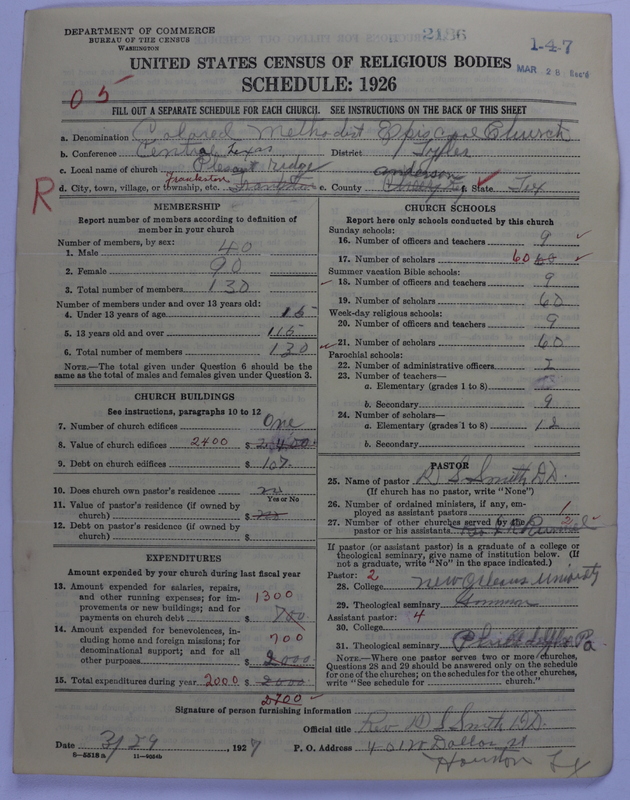 DEPARTMENT OF COMMERCE
BUREAU OF THE CENSUS
WASHINGTON
2186
1-4-7
MAR 28
UNITED STATES CENSUS OF RELIGIOUS BODIES
SCHEDULE: 1926
05
FILL OUT A SEPARATE SCHEDULE FOR EACH CHURCH. SEE INSTRUCTIONS ON THE BACK OF THIS SHEET
a. Denomination Colored Methodist Episcopal Church
b. Conference Central Texas District Tyler
c. Local name of church Pleasant Ridge
R
d. City, town, village, or township, etc. Frankston e. County Anderson f. State Tex
MEMBERSHIP
Report number of members according to definition of member in your church
Number of members, by sex:
1. Male 40
2. Female 90
3. Total number of members 130
Number of members under and over 13 years old:
4. Under 13 years of age 15
5. 13 years old and over 115
6. Total number of members 130
NOTE.—The total given under Question 6 should be the same as the total of males and females given under Question 3.
CHURCH BUILDINGS
See instructions, paragraphs 10 to 12
7. Number of church edifices One
8. Value of church edifices 2400 $
9. Debt on church edifices $ 107.
10. Does church own pastor's residence no
Yes or No
11. Value of pastor's residence (if owned by church) $
12. Debt on pastor's residence (if owned by church) $
EXPENDITURES
Amount expended by your church during last fiscal year
13. Amount expended for salaries, repairs, and other running expenses; for improvements or new buildings; and for payments on church debt 1300 $ 700
14. Amount expended for benevolences, including home and foreign missions; for denominational support; and for all other purposes 700 $ 2000
15. Total expenditures during year 2000 $ 2000
2700
CHURCH SCHOOLS
Report here only schools conducted by this church
Sunday schools:
16. Number of officers and teachers 9
17. Number of scholars 60 60
Summer vacation Bible schools:
18. Number of officers and teachers 9
19. Number of scholars 60
Week-day religious schools:
20. Number of officers and teachers 9
21. Number of scholars 60
Parochial schools:
22. Number of administrative officers
23. Number of teachers—
a. Elementary (grades 1 to 8)
b. Secondary 9
24. Number of scholars—
a. Elementary (grades 1 to 8) 12
b. Secondary
PASTOR
25. Name of pastor R S Smith D.D.
(If church has no pastor, write "None")
26. Number of ordained ministers, if any, employed as assistant pastors 1
27. Number of other churches served by the pastor or his assistants. 2
If pastor (or assistant pastor) is a graduate of a college or theological seminary, give name of institution below. (If not a graduate, write "No" in the space indicated.)
Pastor: 2
28. College New Orleans University
29. Theological seminary Gammon
Assistant pastor: 4
30. College
31. Theological seminary Pa.
NOTE.—Where one pastor serves two or more churches, Questions 28 and 29 should be answered only on the schedule for one of the churches; on the schedules for the other churches, write "See schedule for church."
Signature of person furnishing information
Official title Rev R S Smith DD.
Date 3/29, 1927 P. O. Address 401 W Dallas st
Houston Tx
8-5518a 11-9054b